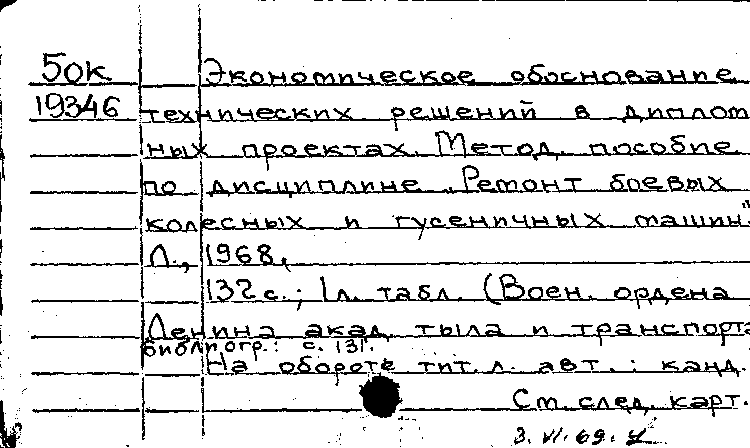 5ок Экономическое обоснование
19346 технических решений в диплом
ных проектах. Метод. пособие
по дисциплине „Ремонт боевых
колесных и гусеничных машин"
Л., 1968.
132 с.; 1 л. табл. (Воен. ордена
Ленина акад. тыла и транспорта
Библиогр.: с. 131.
На обороте тит. л. авт.: канд.
См. след. карт.
3. VI. 69. У